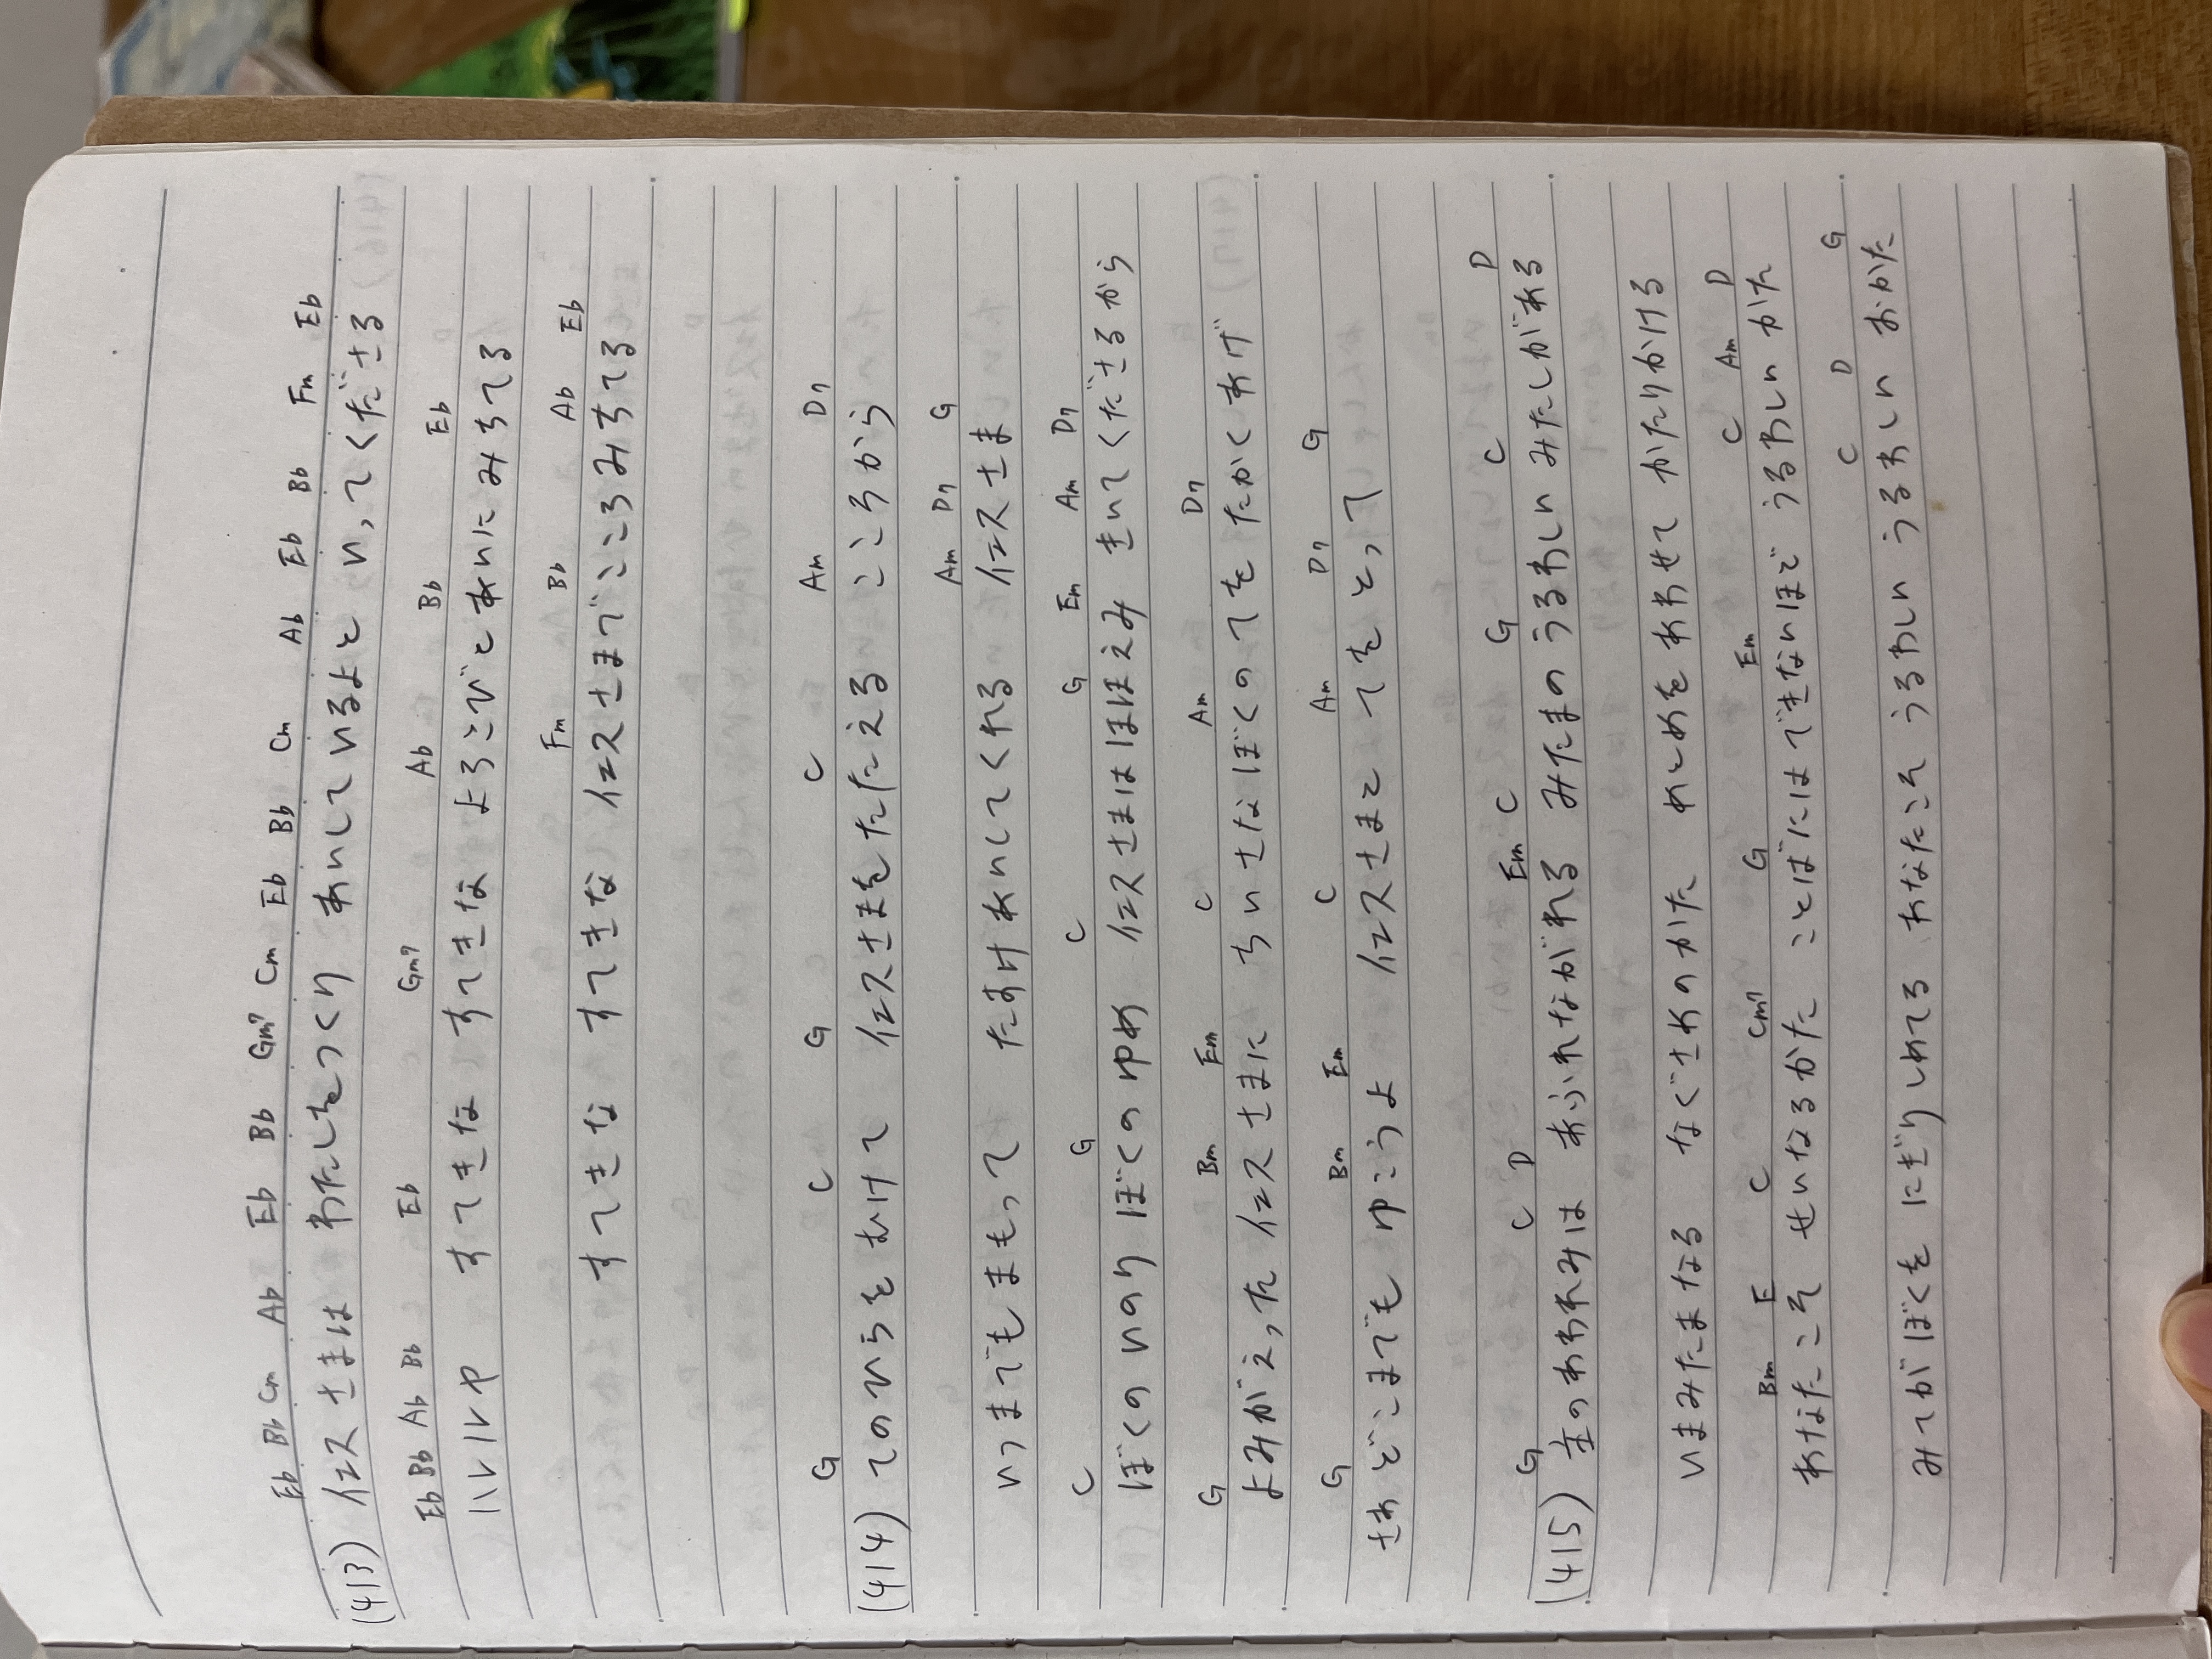 Eb Bb Cm Ab Eb Bb Gm7 Cm Eb Bb Cm Ab Eb Bb Fm Eb
(413) イエスさまは わたしをつくり あいしているよと いってくださる
Eb Bb Ab Bb Eb Gm7 Ab Bb Eb
ハレルヤ すてきな すてきな よろこびとあいにみちてる
Fm Bb Ab Eb
すてきな すてきな イエスさまでこころみちてる
G C G C Am D7
(414) てのひらをむけて イエスさまをたたえる こころから
Am D7 G
いつまでもまもって たすけあいしてくれる イエスさま
C G C G Em Am D7
ぼくのいのり ぼくのゆめ イエスさまはほほえみ きいてくださるから
G Bm Em C Am D7
よみがえった イエスさまに ちいさなぼくのてを たかくあげ
G Bm Em C Am D7 G
さあどこまでも ゆこうよ イエスさまと てをとって
G C D Em C G C D
(415) 主のあわれみは あふれながれる みたまのうるわしい みたしがある
いまみたまなる なぐさめのかた めとめをあわせて かたりかける
Bm E C Cm7 G Em C Am D
あなたこそ せいなるかた ことばにはできないほど うるわしいかた
C D G
みてがぼくを にぎりしめてる あなたこそ うるわしい うるわしい おかた